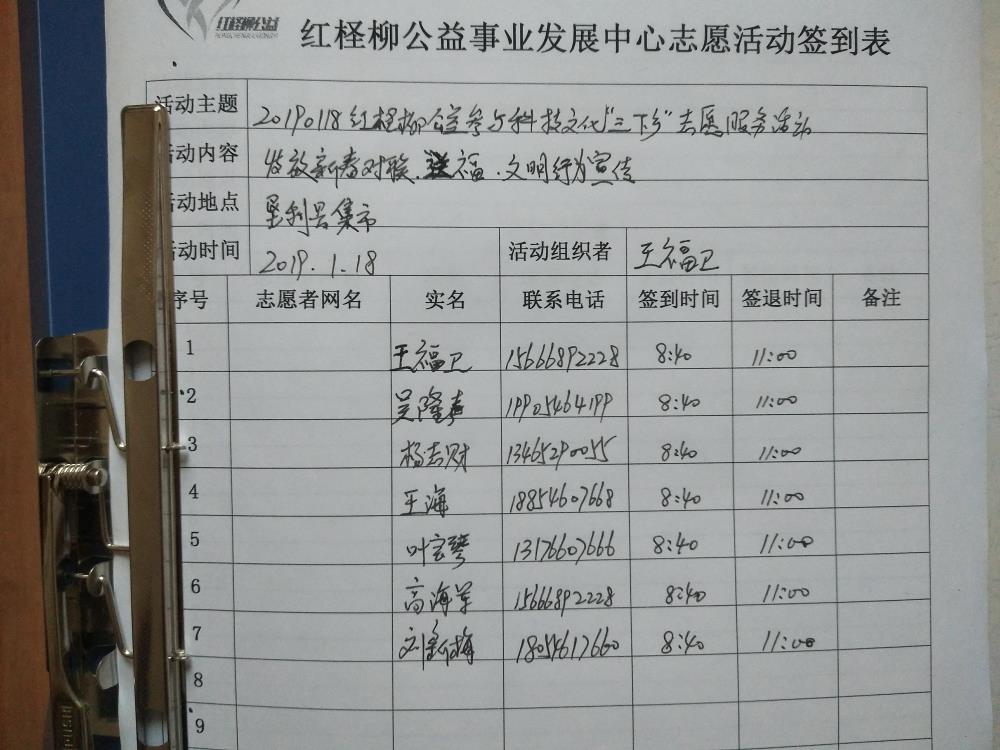 红柽柳公益
红柽柳公益事业发展中心志愿活动签到表
活动主题 20190118红柽柳公益参与科技文化"三下乡"志愿服务活动
活动内容 发放新春对联、送福、文明行为宣传
活动地点 垦利县集市
活动时间 2019.1.18 活动组织者 王福卫
序号 志愿者网名 实名 联系电话 签到时间 签退时间 备注
1 王福卫 15666892228 8:40 11:00
2 吴隆春 19905464199 8:40 11:00
3 杨志财 13465290055 8:40 11:00
4 王海 18854607668 8:40 11:00
5 叶宝琴 13176607666 8:40 11:00
6 高海军 15666892228 8:40 11:00
7 刘新梅 18054617660 8:40 11:00
8
9